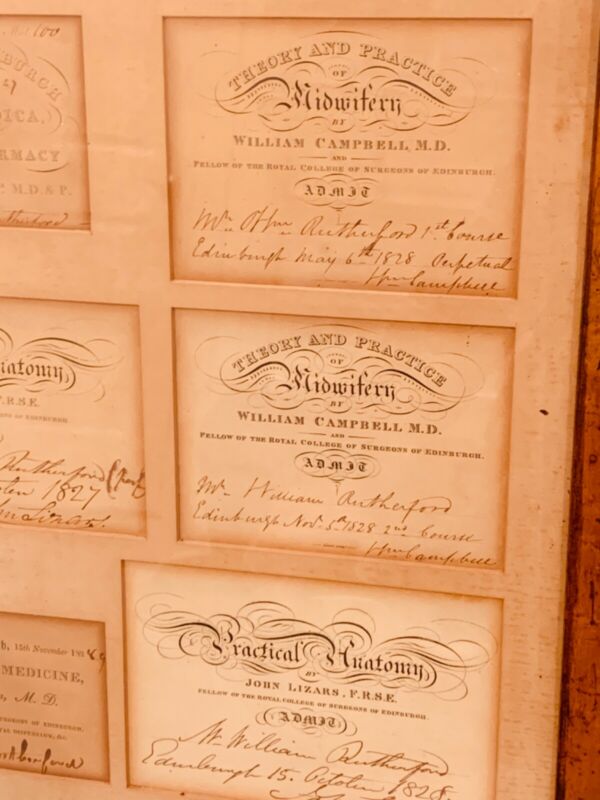 100
EDINBURGH
RMACY
M.D. & P.
Rutherford
THEORY AND PRACTICE
OF
Midwifery
BY
WILLIAM CAMPBELL, M.D.
AND
FELLOW OF THE ROYAL COLLEGE OF SURGEONS OF EDINBURGH.
ADMIT
Mr. Wm Rutherford 1st Course
Edinburgh May 6th 1828 Perpetual
Wm Campbell
natomy,
F.R.S.E.
OF EDINBURGH
Rutherford
1827
THEORY AND PRACTICE
OF
Midwifery
BY
WILLIAM CAMPBELL M.D.
AND
FELLOW OF THE ROYAL COLLEGE OF SURGEONS OF EDINBURGH.
ADMIT
Mr. William Rutherford
Edinburgh Nov. 5th 1828 2nd Course
Wm Campbell
h, 15th November 182
MEDICINE,
M. D.
SURGEONS OF EDINBURGH,
DISPENSARY, &c.
Practical Anatomy
BY
JOHN LIZARS, F.R.S.E.
FELLOW OF THE ROYAL COLLEGE OF SURGEONS OF EDINBURGH.
ADMIT
Mr. William Rutherford
Edinburgh 15. October 1828